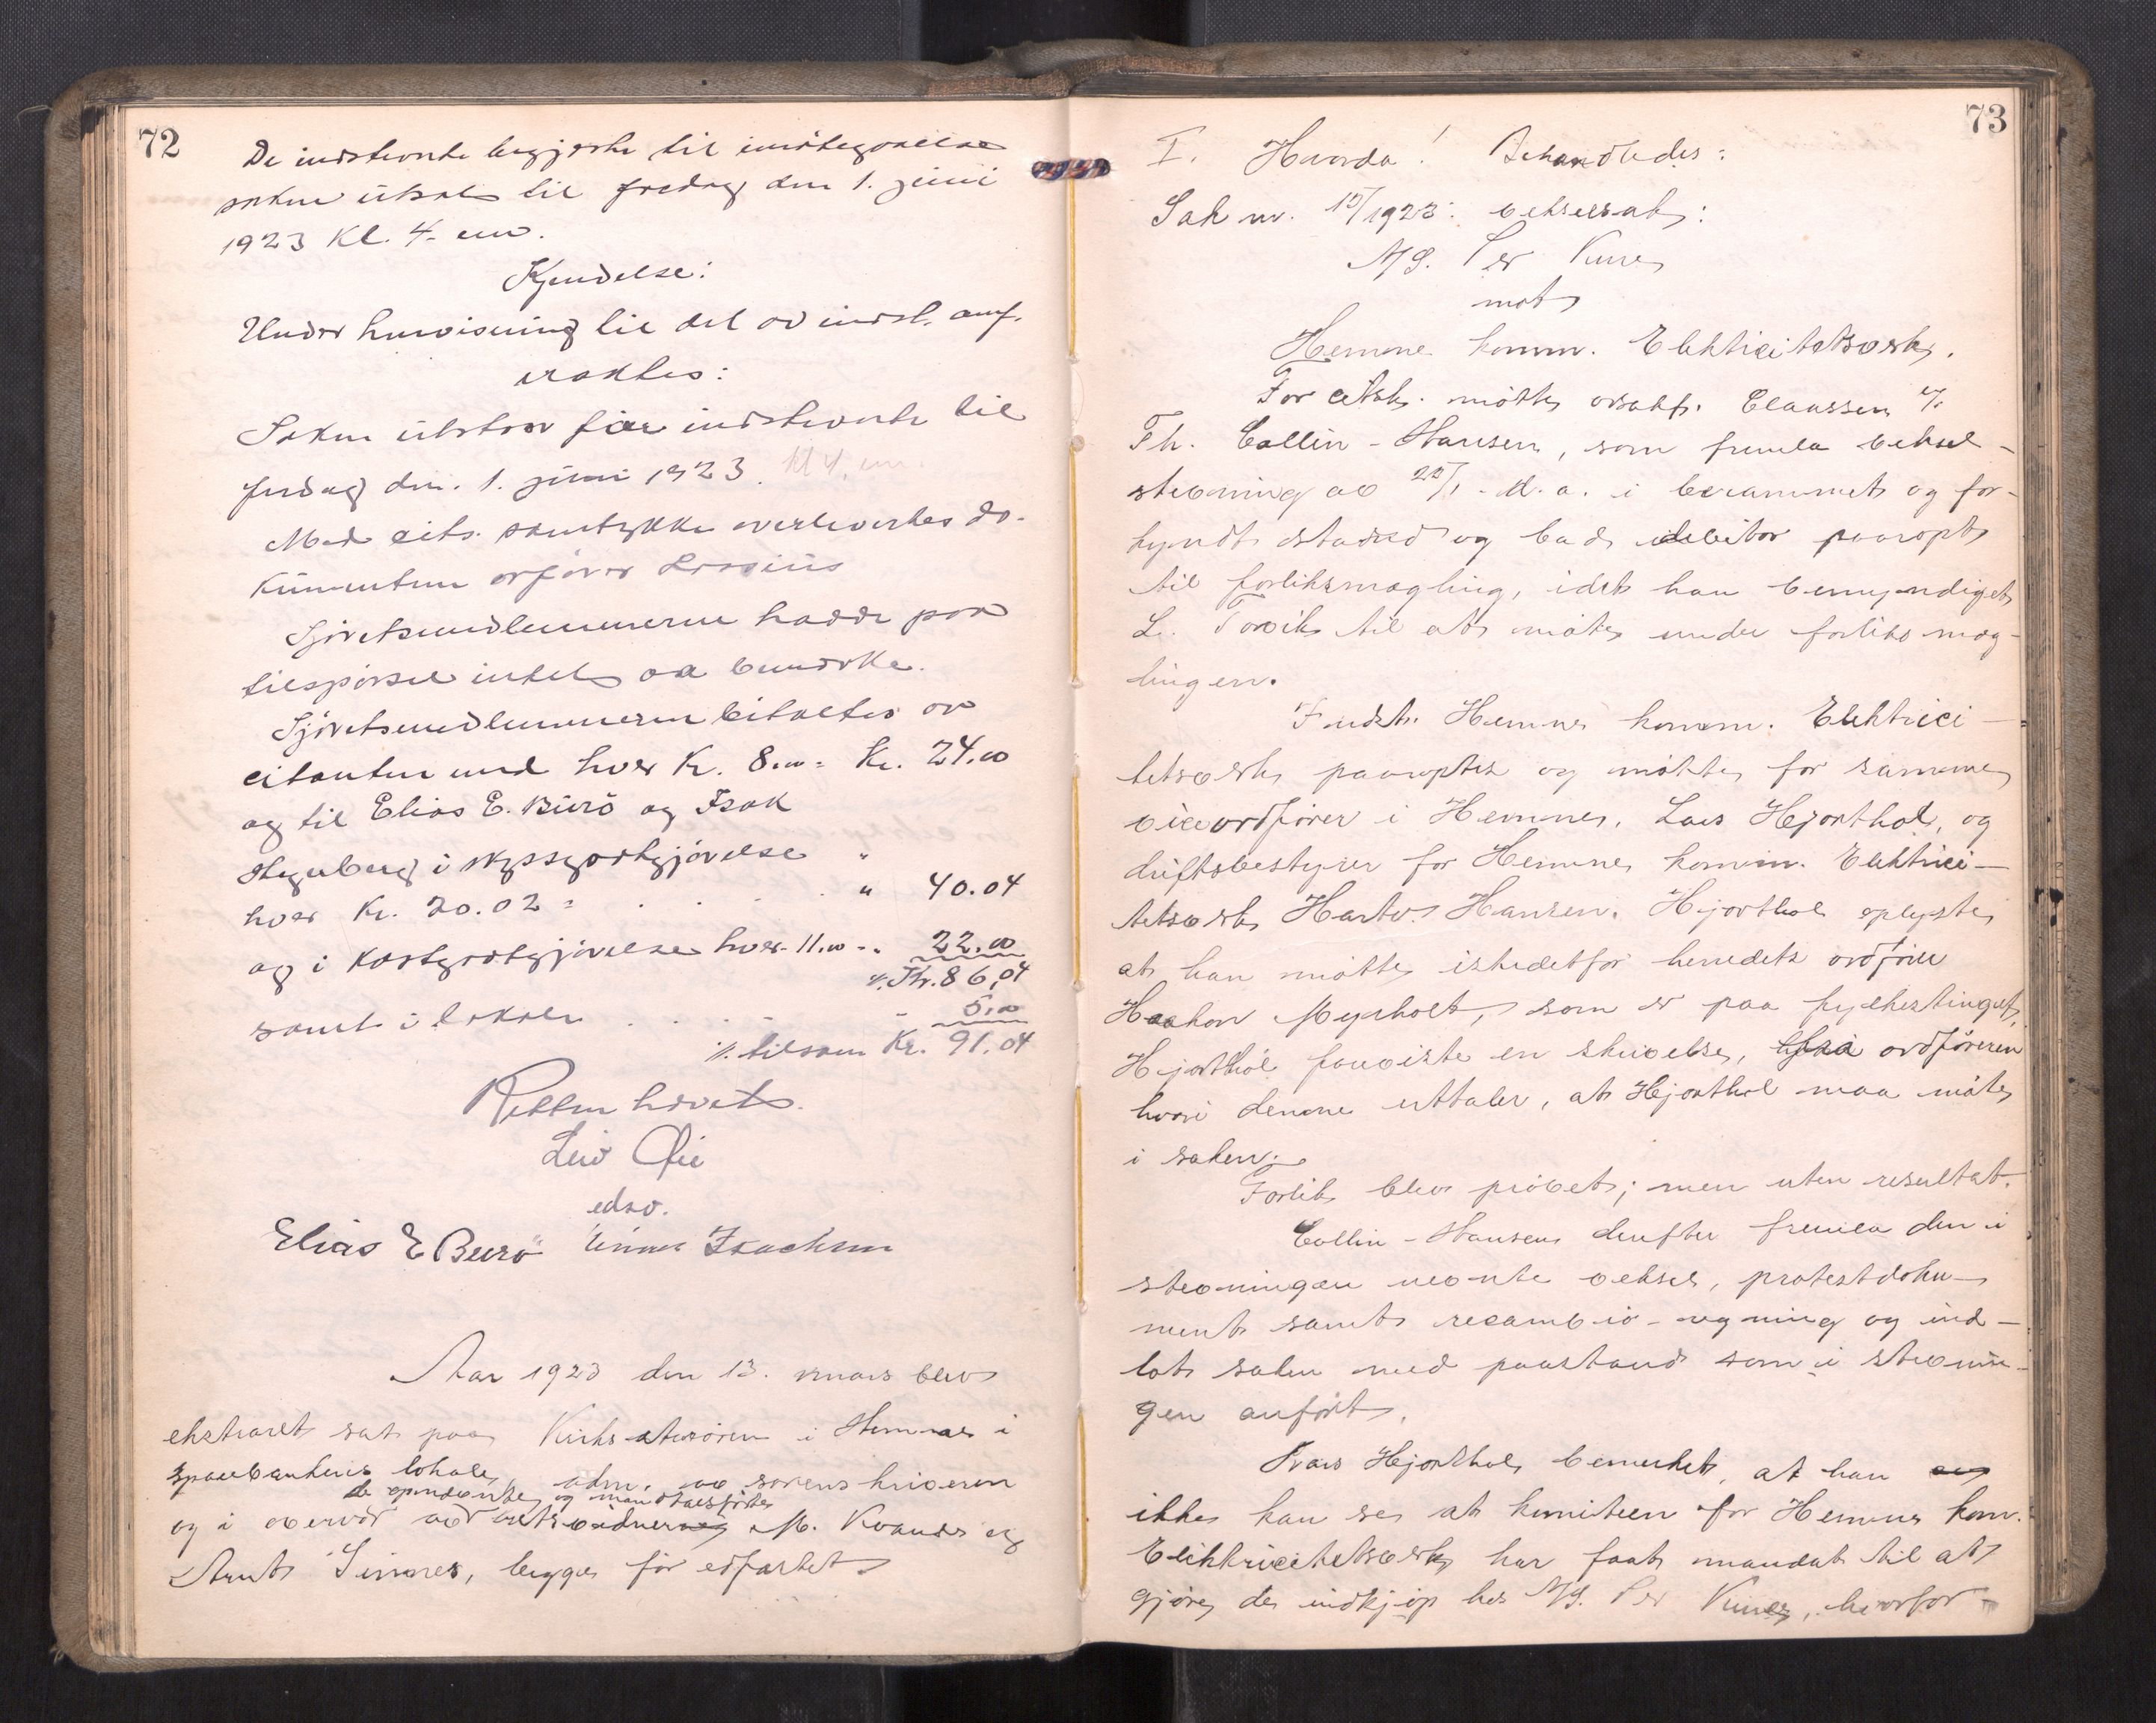 72
De indstevnte begjærte til imøtegaaelse
saken utsat til fredag den 1. juni
1923 Kl. 4. em.
Kjendelse:
Under henvisning til det av indst. anf.
eragtes:
Saken utstaar for indstevnte til
fredag den. 1. juni 1923. Kl 4. em.
Med cits. samtykke overlevertes do-
kumenterne orfører Lossius
Sjøretsmedlemmerne hadde paa
tilspørsel intet aa bemerke.
Sjøretsmedlemmerne betaltes av
citanten med hver Kr. 8.00 = Kr. 24.00
og til Elias E. Burö og Isak
i skyssgodtgjørelse "
hver Kr. 20.02 = . . . . " 40.04
og i kostgodtgjørelse hver 11.00 - " 22.00
Tr. 86,04
samt i lokale . . . . - 5.00
tilsam Kr. 91.04
Retten hævet.
Leiv
edsv.
Elias E Burö Isachsen
Aar 1923 den 13. mars blev
ekstraret sat paa i Hemnes i
sparebankens lokale, adm. av sorenskriveren
og mandtalsførte
og i overvær av retsvidnerne M. Kvands og
Arnt Simnes, begge før edfæstet
73
I. Hvorda! Behandledes:
Sak nr. 15/1923: vekselsak:
A/S. Per Kure
mot
Hemnes komm. Elektricitetsverk.
For citsk. møtte orsakf. Claussen f/
Th. Collin-Hansen, som fremla veksel-
stevning av 22/1 - d. a. i berammet og for-
kyndt stand og bad debitor paaropt
til forliksmægling, idet han bemyndiget
L. Torvik til at møte under forliksmæg-
lingen.
Indst. Hemnes komm. Elektrici-
tetsverk paaroptes og møtte for samme
viceordfører i Hemnes, Lars Hjorthol, og
driftsbestyrer for Hemnes komm. Elektrici-
tetsverk Hartv. Hansen. Hjorthol oplyste
at han møtte istedetfor herredets ordfører
Haakon Myrholt, som er paa fylkestinget,
Hjorthol foreviste en skrivelse, ordføreren
hvori denne uttaler, at Hjorthol maa møte
i saken.
Forlik blev prøvet; men uten resultat.
Collin-Hansen derefter fremla den i
stevningen nevnte veksel, protestdoku-
ment samt recambio-regning og ind-
lot saken med paastand som i stevnin-
gen anført.
Hjorthol bemerket, at han
ikke kan se at komiteen for Hemnes kom.
Elektricitetsverk har faat mandat til at
gjøre de indkjøp hos A/S. Per Kure, hvorfor-